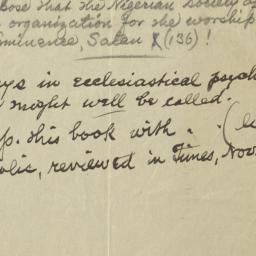 that the Nigerian Society of
organization for the worship
Eminence, Satan (136) !
in ecclesiastical
might well be called.
this book with . . (
reviewed in Times, Nov